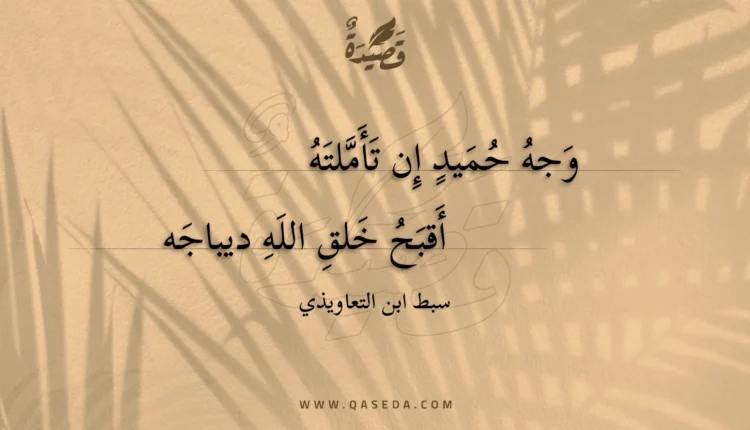 قَصِيدَةٌ
وَجهُ حُمَيدٍ إِن تَأَمَّلتَهُ
أَقبَحُ خَلقِ اللَهِ ديباجَه
سبط ابن التعاويذي
WWW.QASEDA.COM